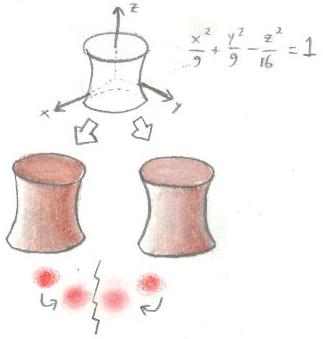 z
x²/9 + y²/9 - z²/16 = 1
x
y